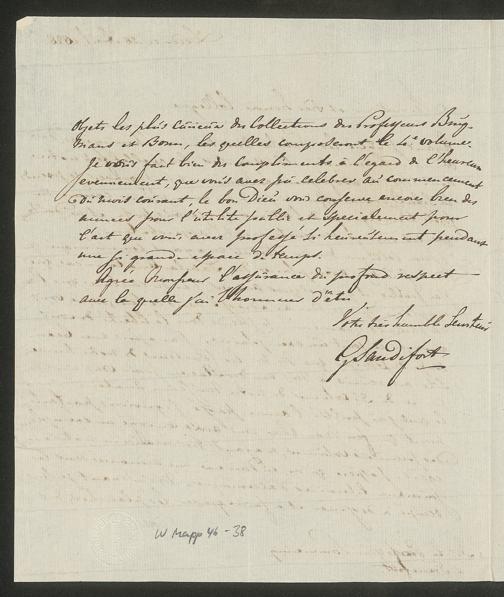 objets les plus curieux des Collections des Professeurs Brug-
mans et Bonn, les quelles composeront le 4e volume.
Je vous fait bien des Compliments à l'egard de l'heureux
evennement, que vous avez pû celebrer au commencement
du mois courant, le bon Dieu vous conserve encore bien des
années pour l'utilité public et specialement pour
l'art que vous avez professé si heureusement pendant
une si grande espace de temps.
Agrée Monsieur l'assurance du profond respect
avec la quelle j'ai l'honneur d'etre
Votre très humble Serviteur
G Sandifort
W Mapp 46 - 38